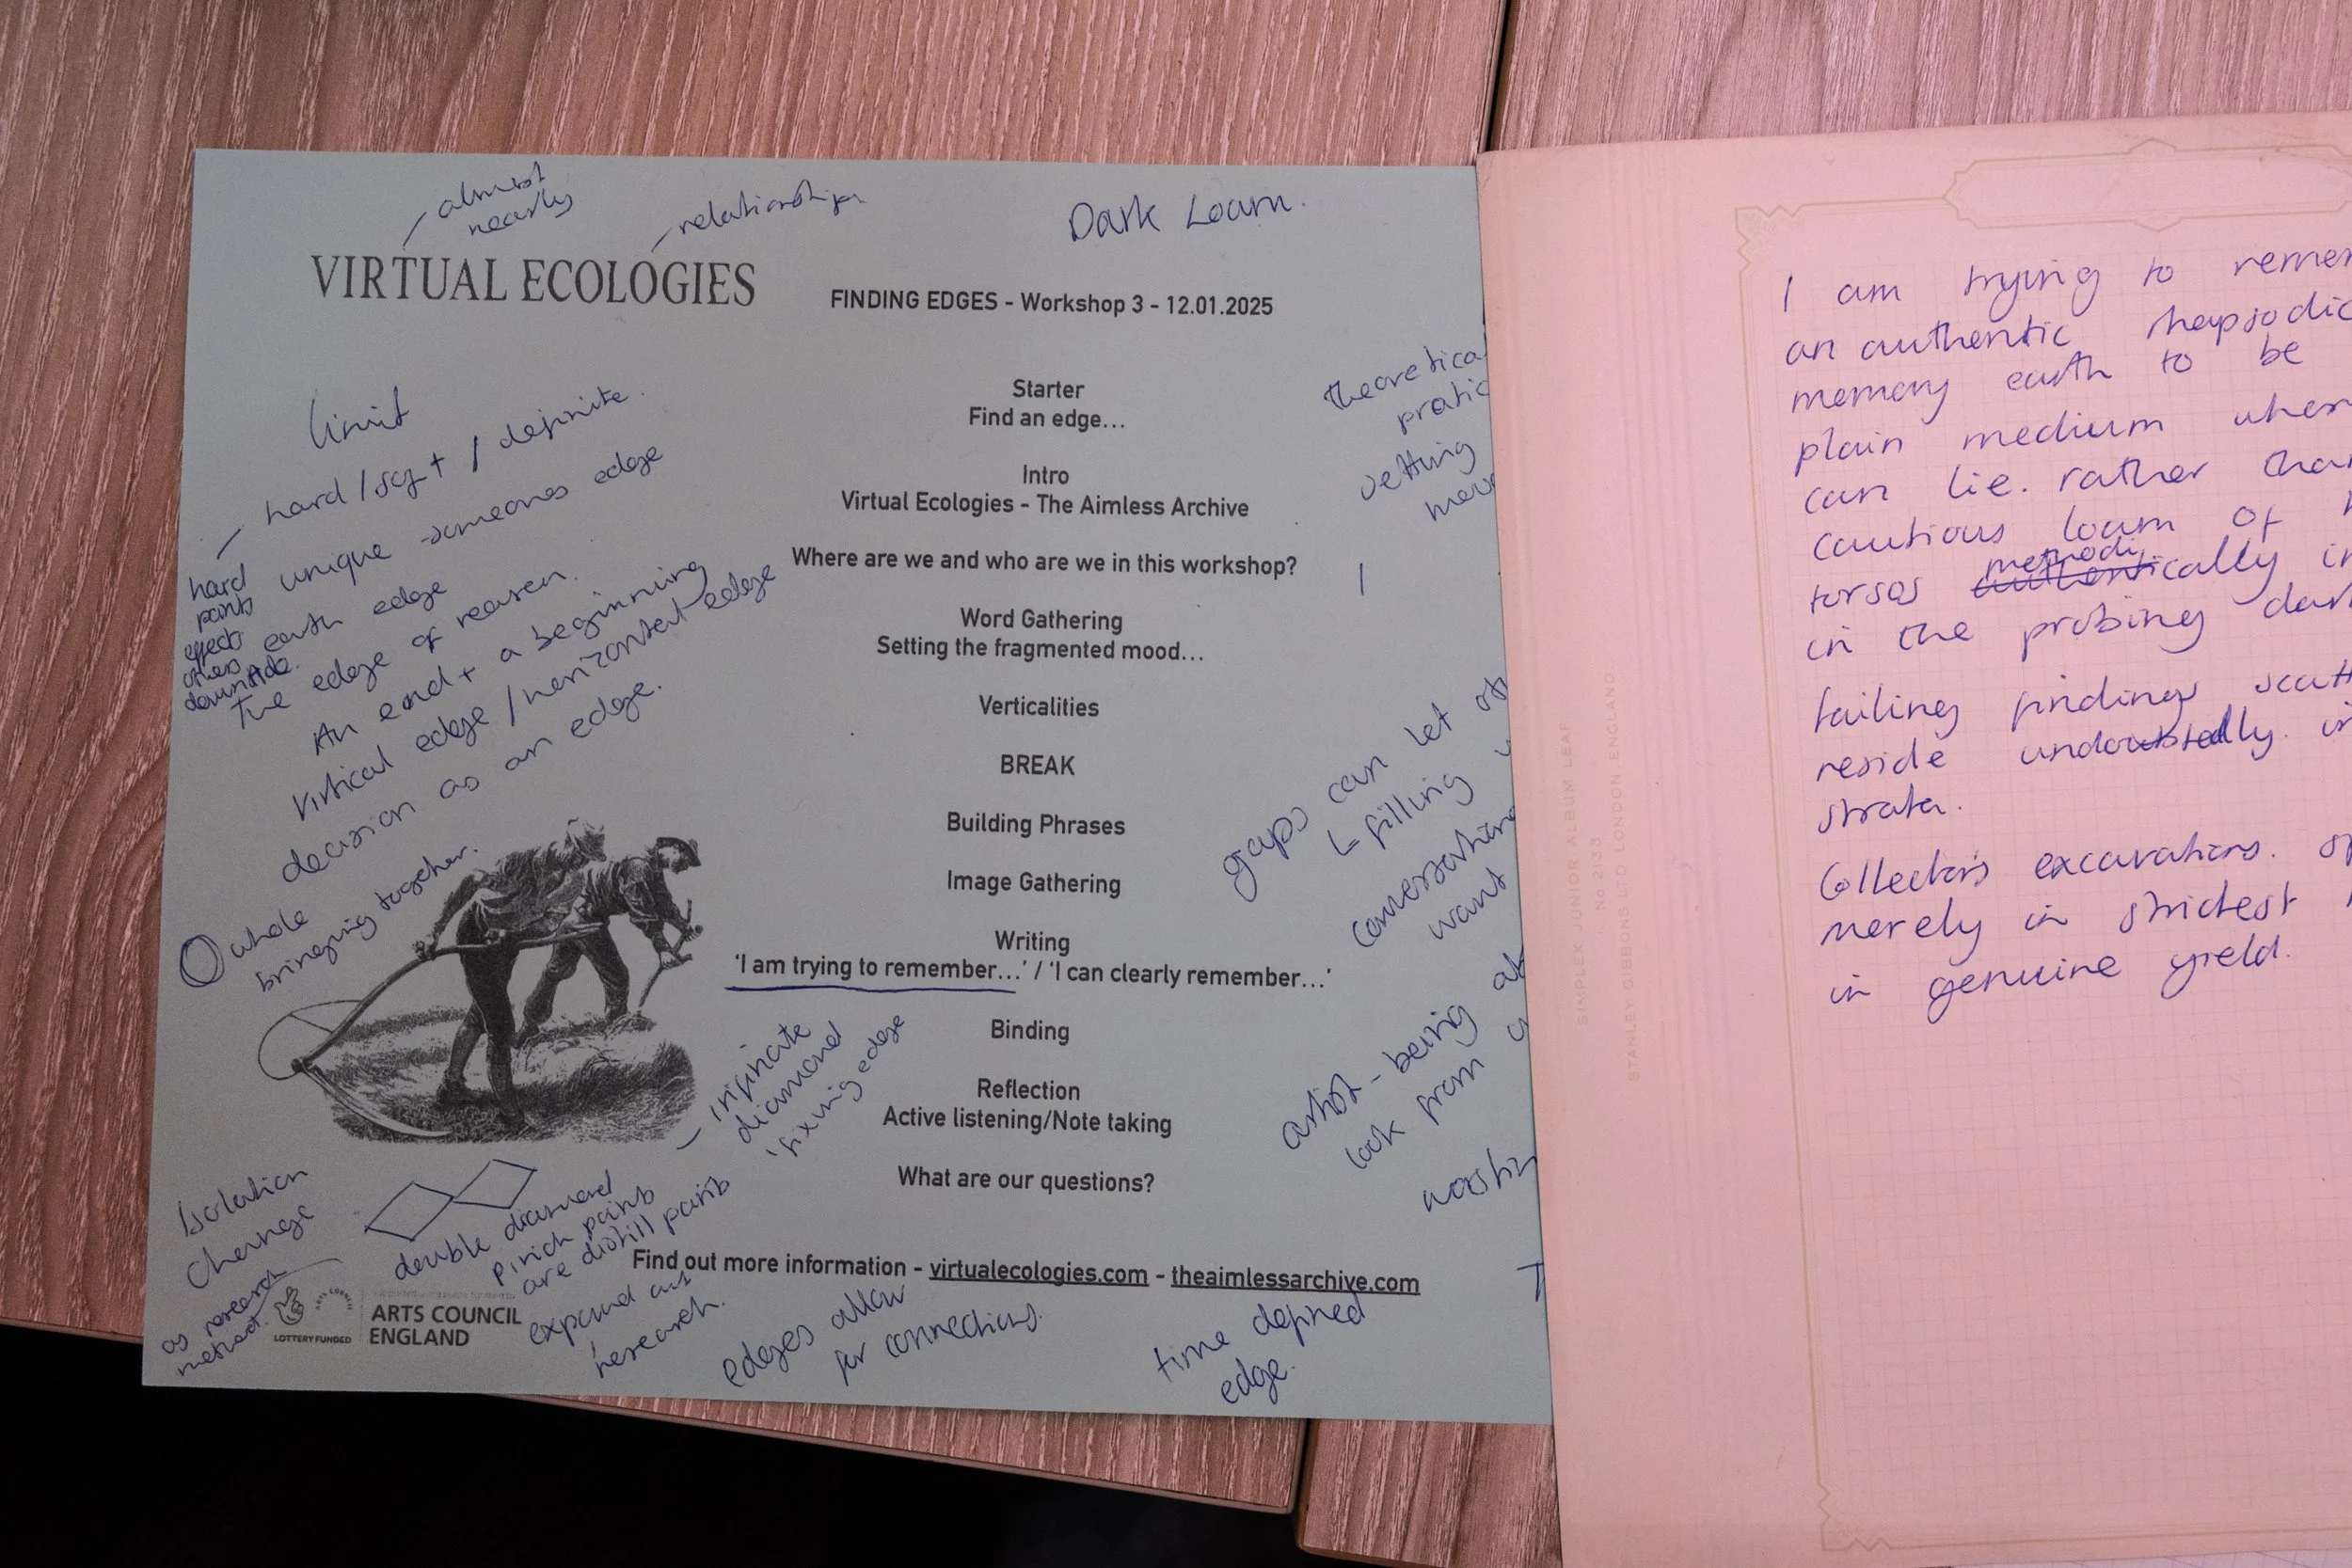 almost
nearly
relationships
Dark Loam.
VIRTUAL ECOLOGIES
FINDING EDGES - Workshop 3 - 12.01.2025
Starter
Find an edge...
Intro
Virtual Ecologies - The Aimless Archive
Where are we and who are we in this workshop?
Word Gathering
Setting the fragmented mood...
Verticalities
BREAK
Building Phrases
Image Gathering
Writing
'I am trying to remember...' / 'I can clearly remember...'
Binding
Reflection
Active listening/Note taking
What are our questions?
Find out more information - virtualecologies.com - theaimlessarchive.com
LOTTERY FUNDED
ARTS COUNCIL
ENGLAND
limit
hard / soft / definite.
unique someones edge
hard
points
effects
others
earth edge
The edge of reason.
An end + a beginning
virtical edge / horizontal edge
decision as an edge.
whole
bringing together.
infinate
diamond
fixing edge
Isolation
Change
as research
method.
double diamond
pinch points
are distill points
expand out
research.
edges allow
for connections.
time defined
edge.
theoretical
vetting
gaps can let
filling
want
artist - being
look from
I am trying to
an authentic rhapsodic
memory earth to be
plain medium
can lie. rather
cautious loam of
methodi
torsos authentically in
in the probing
failing findings
reside undoubtedly. in
strata.
Collectors excavations.
merely in strictest
in genuine yield.
SIMPLEX JUNIOR ALBUM LEAF
No 2133
STANLEY GIBBONS LTD LONDON ENGLAND